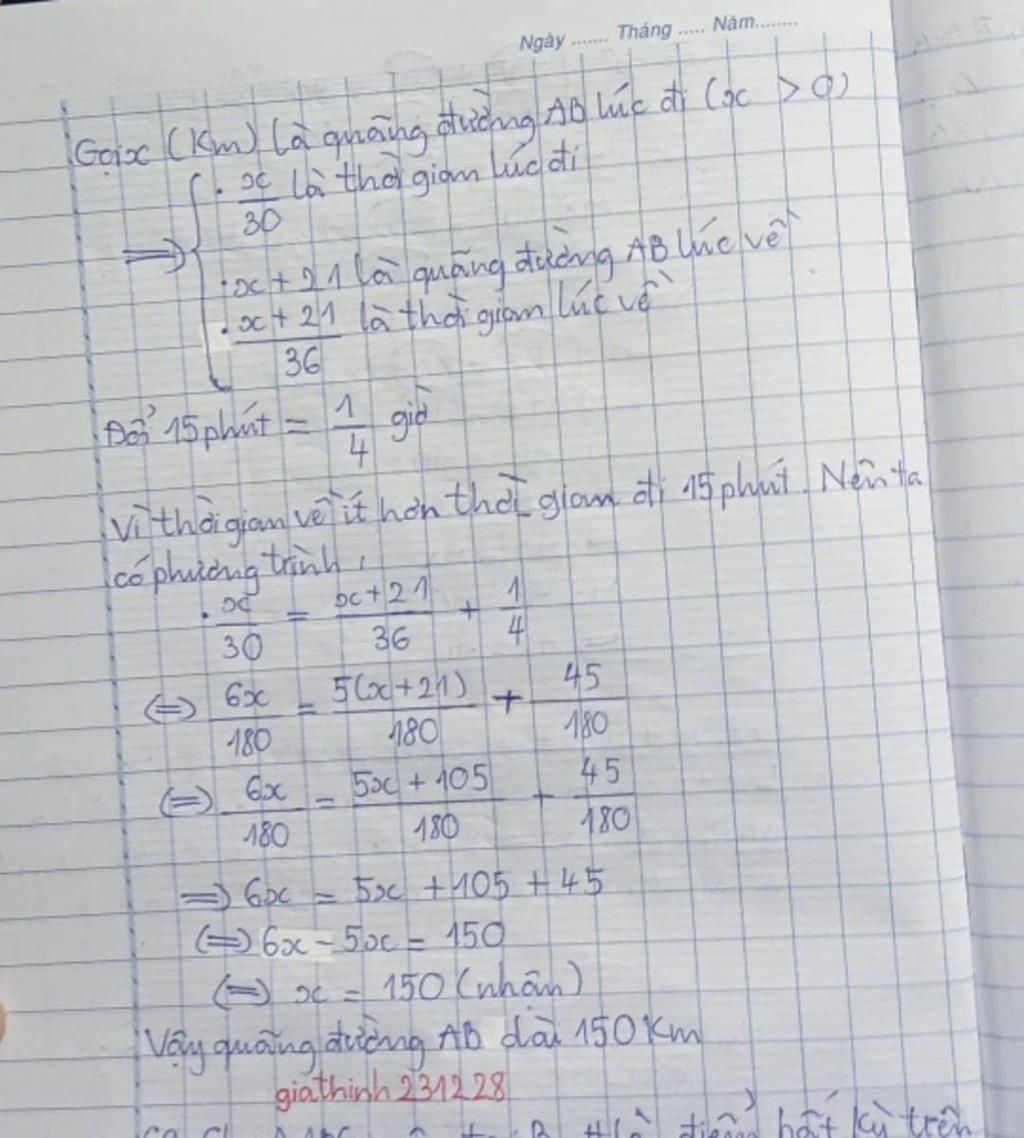 Ngày ....... Tháng ..... Năm........
Gọi x (Km) là quãng đường AB lúc đi (x > 0)
⟹ { . x/30 là thời gian lúc đi
. x + 21 là quãng đường AB lúc về
. x + 21/36 là thời gian lúc về
Đổi 15 phút = 1/4 giờ
Vì thời gian về ít hơn thời gian đi 15 phút. Nên ta
có phương trình:
. x/30 = x + 21/36 + 1/4
(=) 6x/180 = 5(x+21)/180 + 45/180
(=) 6x/180 = 5x + 105/180 + 45/180
=) 6x = 5x + 105 + 45
(=) 6x - 5x = 150
(=) x = 150 (nhận)
Vậy quãng đường AB dài 150 Km
giathinh231228
điểm bất kỳ trên